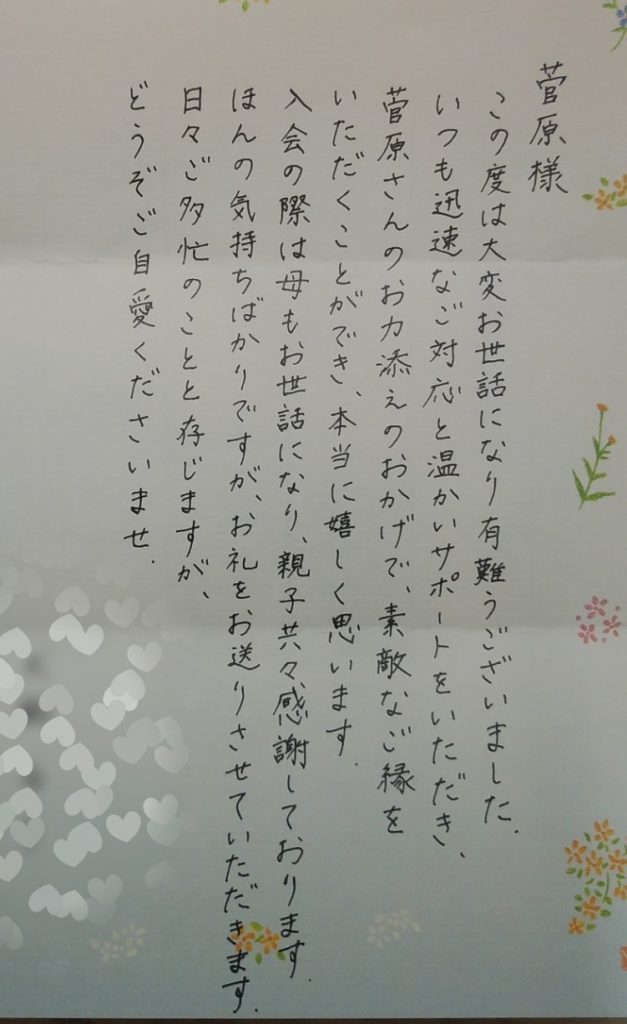 菅原様
この度は大変お世話になり有難うございました.
いつも迅速なご対応と温かいサポートをいただき、
菅原さんのお力添えのおかげで、素敵なご縁を
いただくことができ、本当に嬉しく思います.
入会の際は母もお世話になり、親子共々感謝しております.
ほんの気持ちばかりですが、お礼をお送りさせていただきます.
日々ご多忙のことと存じますが、
どうぞご自愛くださいませ.